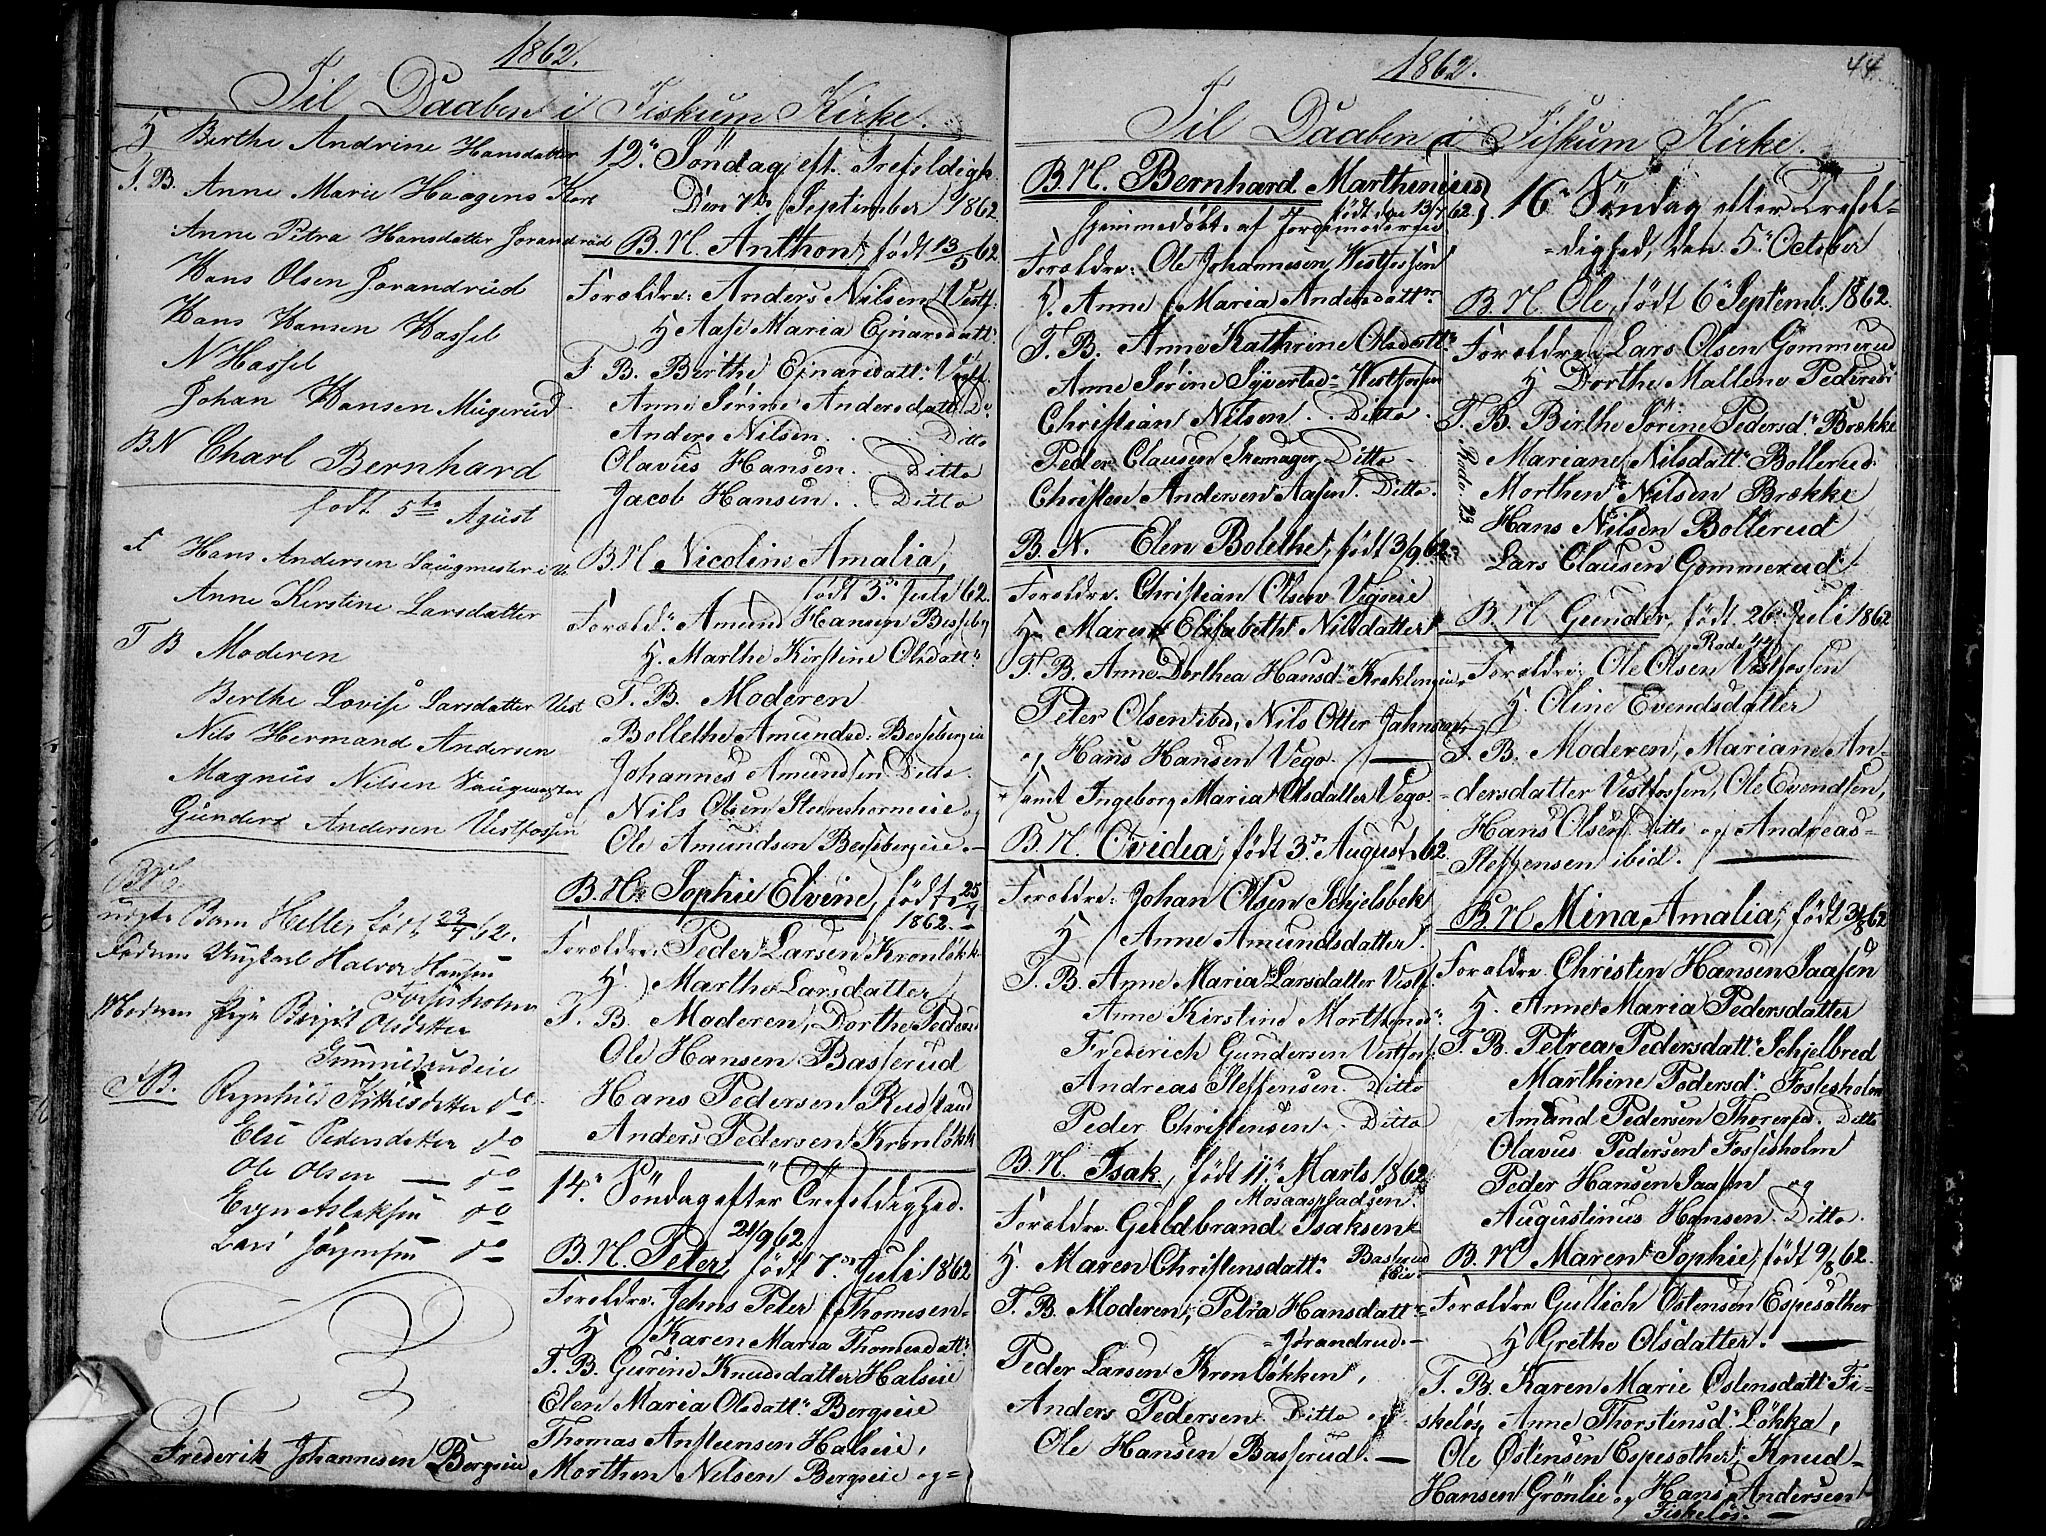 1862.
Til Daaben i Fiskum Kirke.
H Berthe Andrine Hansdatter
F. B. Anne Marie Haagens
Anne Petra Hansdatter Jorandrud
Hans Olsen Jorandrud
Hans Hansen Hassel
N Hassel
Johan Hansen Mugerud
BN Charl Bernhard
født 5te Agust
F Hans Andersen Saugmester i
Anne Kirstine Larsdatter
F B Moderen
Berthe Lovise Larsdatter Vest
Nils Hermand Andersen
Magnus Nilsen Saugmester
Gunders Andersen Vestfossen
Barn Helle, født 23/7 62.
Faderen Ungkarl Halvor Hansen
Fossesholm
Moderen Pige Birgit Olsdatter
FB. Ragnhild do
Else Pedersdatter do
Ole Olsen — do
Even Aslaksen do
Lars Jørgensen do
12te Søndag eft. Trefoldigh.
Den 7de September 1862
B. N. Anthon, født 13/5 62
Forældre: Anders Nilsen Vestf.
H Aase Maria Ejnarsdatt:
F B. Birthe Ejnarsdatt: Vestf.
Anne Sørine Andersdatt: Do.
Anders Nilsen. . . Ditto
Olavus Hansen. . Ditto
Jacob Hansen. . Ditto
B. N Nicoline Amalia,
født 3de Juli 62.
Foræld: Amund Hansen Besseberg
H. Marthe Kirstine Olsdatt:
F. B. Moderen
Bollethe Amundsd: Bessebergeie
Johannes Amundsen Ditto.
Nils Olsen Steenshorneie og
Ole Amundsen Bessebergeie. —
B. N. Sophie Elvine, født 25/7
1862. —
Forældre: Peder Larsen Kronløkk.
H. Marthe Larsdatter
F. B. Moderen, Dorthe Peders
Ole Hansen Basserud
Hans Pedersen Rustand
Anders Pedersen Kronløkk
14de Søndag efter Trefoldighed.
21/9 62
B. N. Peter, født 7de Juli 1862
Forældre. Jehns Peter Thomesen
H Karen Maria Thomesdatt:
F. B. Gurine Knudsdatter Halseie
Elen Maria Olsdatt: Bergseie
Thomas Anstensen Halseie,
Morthen Nilsen Bergseie og
Frederik Johannesen Bergseie
1862.
44
Til Daaben i Fiskum Kirke.
B. N. Bernhard Marthinius
født den 13/7 62.
hjemmedøbt af Jordemoderen
Forældre: Ole Johannesen Westfossen
H. Anne Maria Andersdattr
F. B. Anne Kathrine Olsdatt:
Anne Sørine Syvertsd: Westfossen
Christian Nilsen. . Ditto.
Peder Clausen Skomager Ditto
Christen Andersen Aasen. Ditto.
B. N. Elen Bolethe, født 3/9 62
Forældre. Christian Olsen Vegoeie
H Maren Elisabeth Nilsdatter
F. B. Anne Dorthea Hansd: Kreklingeie
Peter Olsen ibid, Nils Otter Jahnsen
og Hans Hansen Vego. —
samt Ingeborg Maria Olsdatter Vego.
B. N. Ovidia, født 3de August 62.
Forældre: Johan Olsen Schjelsbek
H Anne Amundsdatter.
F. B. Anne Maria Larsdatter Vestf.
Anne Kirstine Morthensd:
Frederich Gundersen Vestfoss.
Andreas Steffensen. Ditto
Peder Christensen. Ditto
B. N. Isak, født 11te Marts 1862
Forældre. Guldbrand Isaksen
H. Maren Christensdatt: Basserud
Eie.
F. B. Moderen, Petra Hansdatt:
Jørandrud. —
Peder Larsen Kronløkken,
Anders Pedersen Ditto og
Ole Hansen Basserud. —
16de Søndag efter Trefol-
dighed, den 5te October
B. N Ole, født 6te Septemb. 1862
Forældre Lars Olsen Gommerud
H Dorthe Mallene Pedersd:
F. B. Birthe Sørine Pedersd: Brække
Mariane Nilsdatt: Bollerud
Morthen Nilsen Brække
Hans Nilsen Bollerud
Lars Clausen Gommerud.
Rode. 23
B. N Gunder, født 26de Juli 1862
Rode 24
Forældre: Ole Olsen Vestfossen
H. Oline Evendsdatter
F. B. Moderen, Mariane An-
dersdatter Vestfossen, Ole Evendsen,
Hans Olsen Ditto og Andreas
Steffensen ibid. —
B. N Mina Amalia, født 3/8 62
Forældre Christen Hansen Saasen
H. Anne Maria Pedersdatter
F. B. Petrea Pedersdatt: Schjelbred
Marthine Pedersd: Fossesholm
Amund Pedersen Thorersd. Ditto
Olavus Pedersen Fossesholm
Peder Hansen Saasen og
Augustinus Hansen Ditto.
B. N Maren Sophie, født 9/8 62.
Forældre Gullich Østensen Espesæther
H Grethe Olsdatter. —
F. B. Karen Marie Østensdatt: Fi-
skeløs, Anne Thorstensd: Løkka,
Ole Østensen Espesæther, Knud
Hansen Grønlie og Hans Andersen
Fiskeløs. —